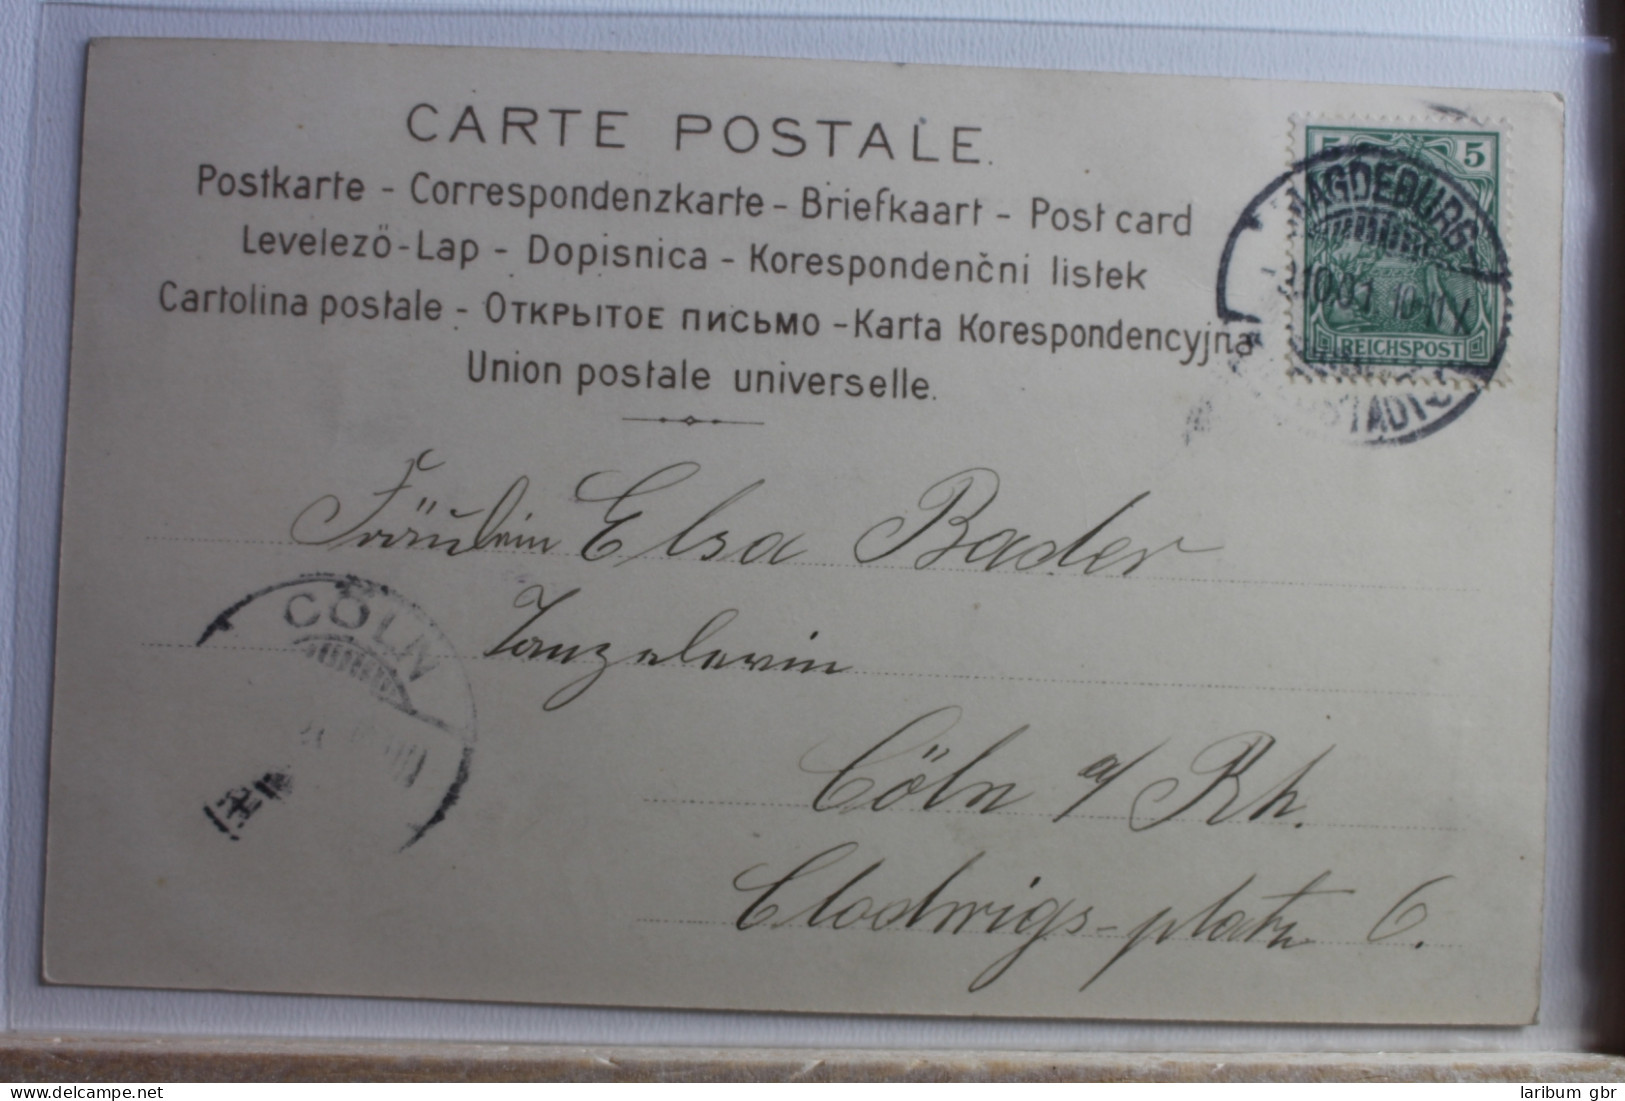 CARTE POSTALE.
Postkarte - Correspondenzkarte - Briefkaart - Post card
Levelező-Lap - Dopisnica - Korespondenční listek
Cartolina postale - Открытое письмо - Karta Korespondencyjna
Union postale universelle.
5 5
MAGDEBURG
REICHSPOST
Fräulein Elsa Bader
CÖLN
Cöln a/Rh.
Clodwigs-platz 6.
www.delcampe.net
laribum gbr